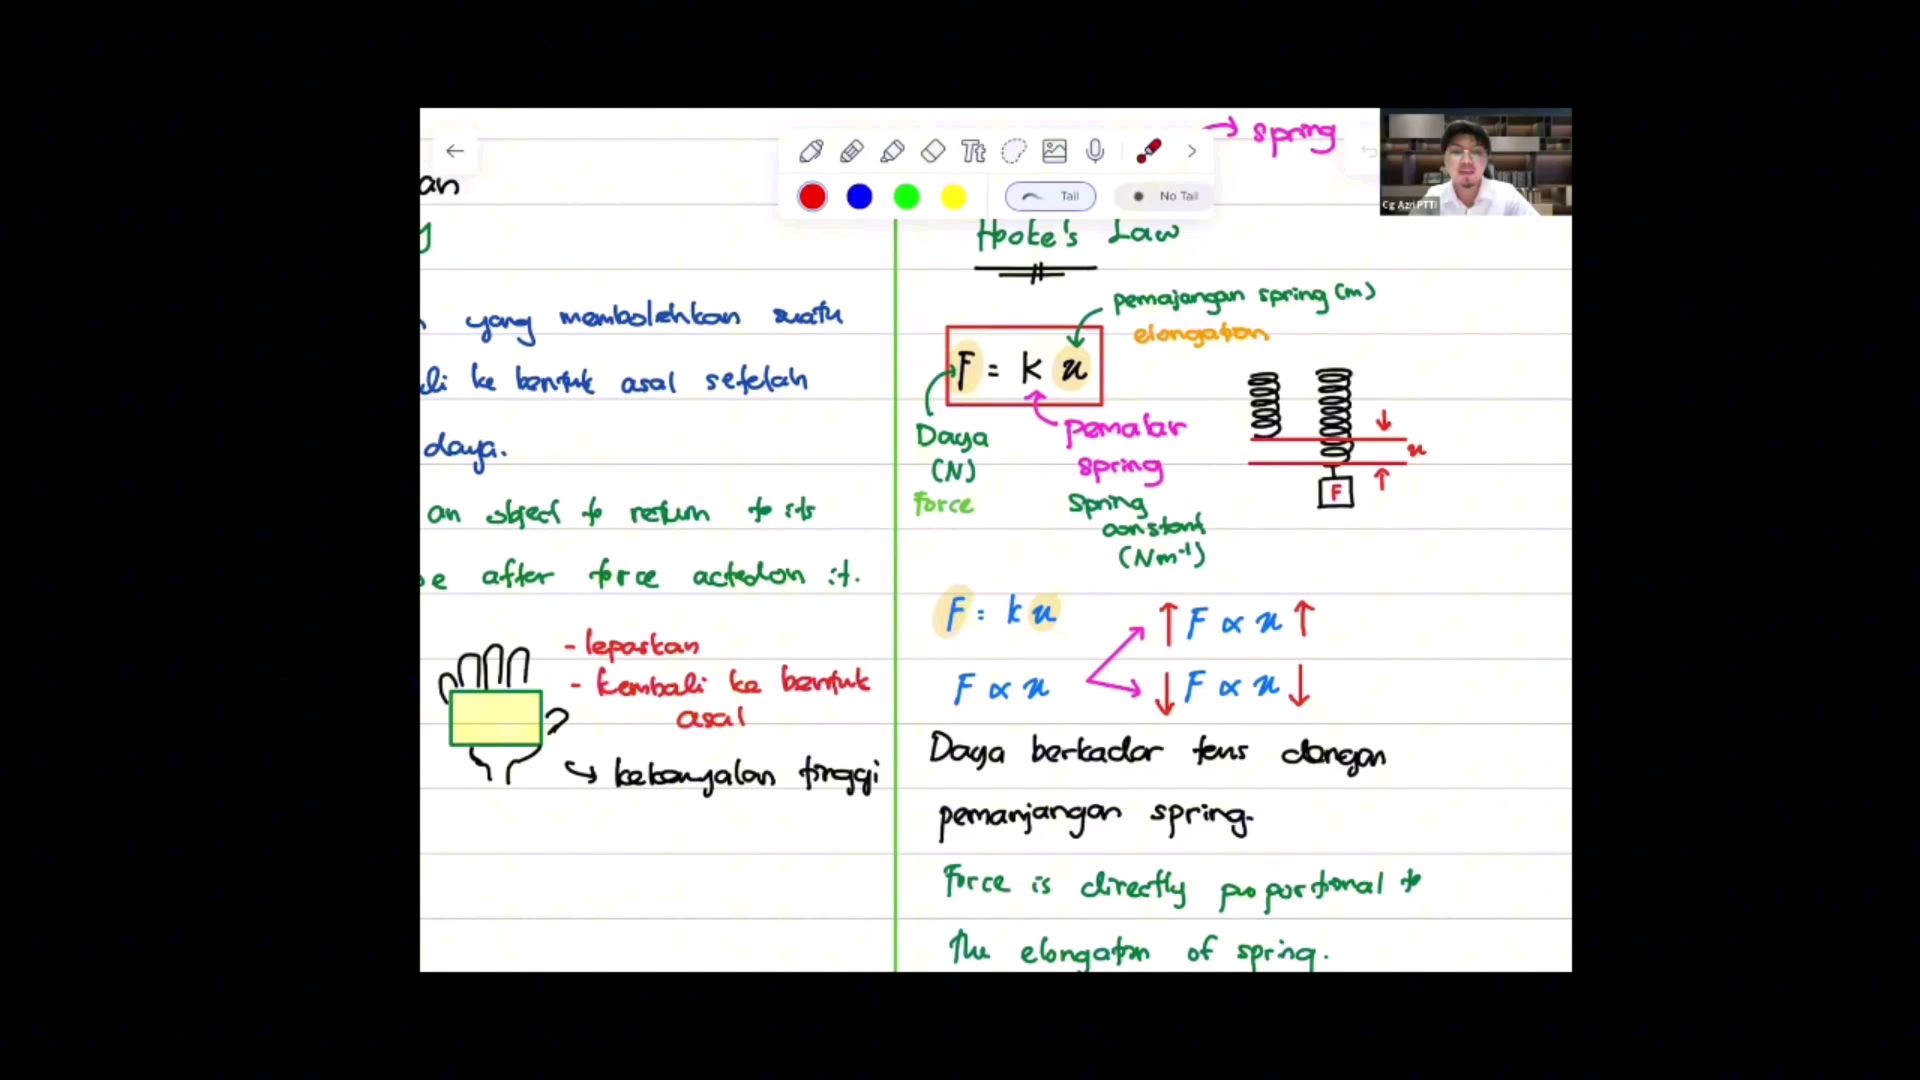 → spring
an
Tt
Tail
No Tail
Cg Azri PTTI
Hooke's Law
yang membolehkan suatu
li ke bentuk asal setelah
daya.
an object to return to its
e after force acted on it.
- lepaskan
- kembali ke bentuk
asal
↪ kekenyalan tinggi
pemajangan spring (m)
elongation
F = k x
Daya
(N)
Force
pemalar
spring
Spring
constant
(Nm⁻¹)
x
F
F = k x
F ∝ x
↑ F ∝ x ↑
↓ F ∝ x ↓
Daya berkadar terus dengan
pemanjangan spring.
Force is directly proportional to
the elongation of spring.